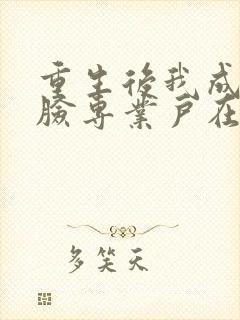 重生後我成
臉專業戶在
多笑天